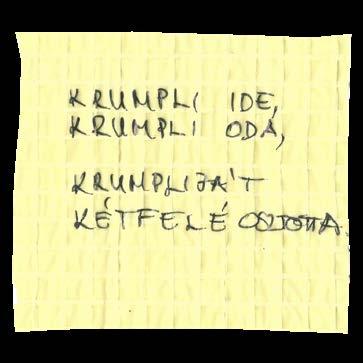 KRUMPLI IDE,
KRUMPLI ODA,
KRUMPLIJÁT
KÉTFELÉ OSZTOTTA.